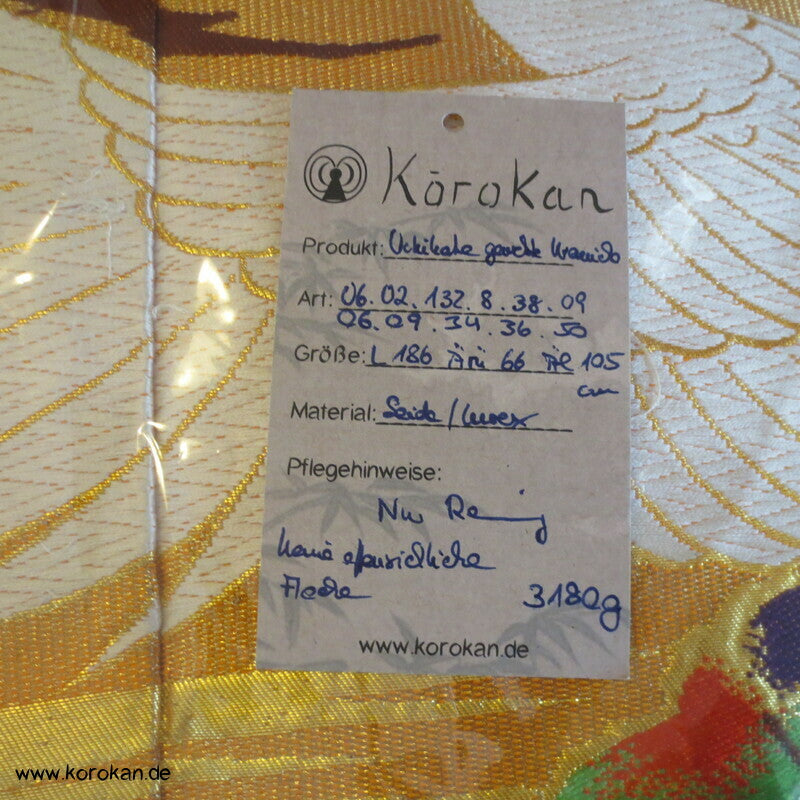 Kōrokan
Produkt: Uchikake gewebte Kraniche
Art: 06.02.132.8.38.09
06.09.34.36.50
Größe: L 186 Äm 66 Äl 105
cm
Material: Seide/Lurex
Pflegehinweise:
Nur
keine offensichtliche
Flecke
3180g
www.korokan.de
www.korokan.de